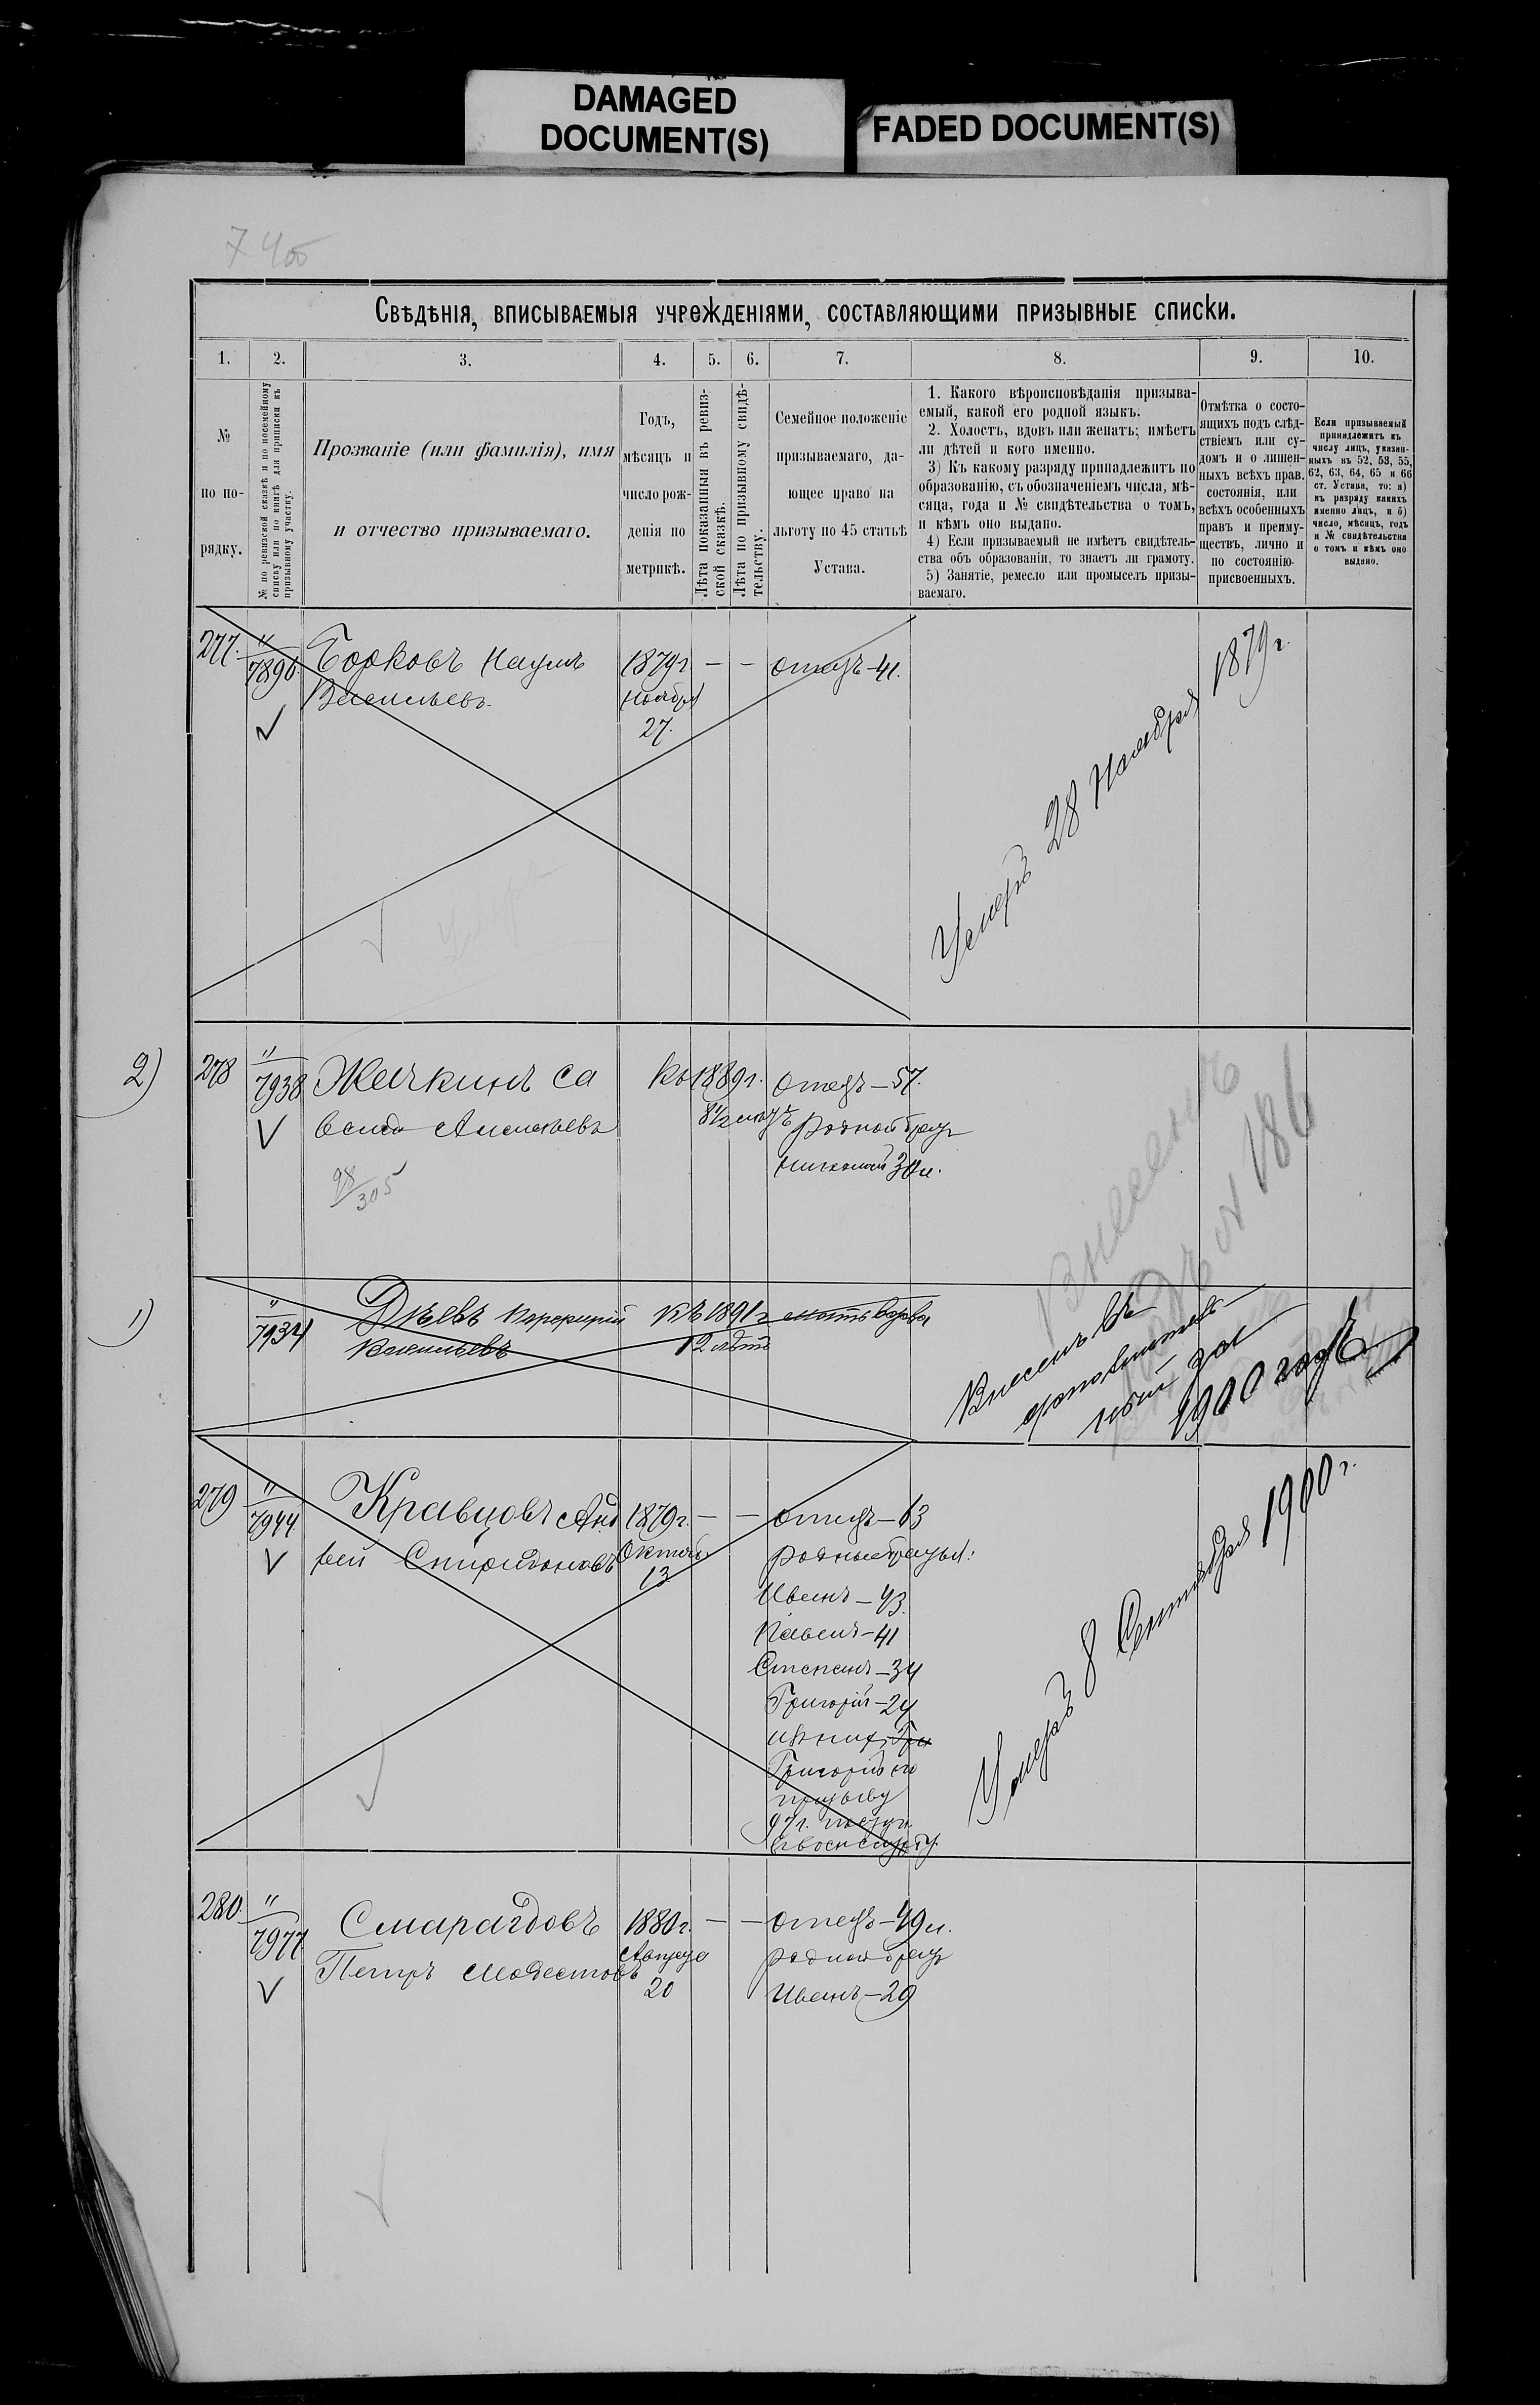 DAMAGED
DOCUMENT(S)
FADED DOCUMENT(S)
Свѣдѣнія, вписываемыя учрежденіями, составляющими призывные списки.
1. 2. 3. 4. 5. 6. 7. 8. 9. 10.
№
по по-
рядку.
№ по ревизской сказкѣ и по посемейному
списку или по книгѣ для приписки къ
призывному участку.
Прозваніе (или фамилія), имя
и отчество призываемаго.
Годъ,
мѣсяцъ и
число рож-
денія по
метрикѣ.
Лѣта показанныя въ ревиз-
ской сказкѣ.
Лѣта по призывному свидѣ-
тельству.
Семейное положеніе
призываемаго, да-
ющее право на
льготу по 45 статьѣ
Устава.
1. Какого вѣроисповѣданія призыва-
емый, какой его родной языкъ.
2. Холостъ, вдовъ или женатъ; имѣетъ
ли дѣтей и кого именно.
3) Къ какому разряду принадлежитъ по
образованію, съ обозначеніемъ числа, мѣ-
сяца, года и № свидѣтельства о томъ,
и кѣмъ оно выдано.
4) Если призываемый не имѣетъ свидѣтель-
ства объ образованіи, то знаетъ ли грамоту.
5) Занятіе, ремесло или промыселъ призы-
ваемаго.
Отмѣтка о состо-
ящихъ подъ слѣд-
ствіемъ или су-
домъ и о лишен-
ныхъ всѣхъ прав.
состоянія, или
всѣхъ особенныхъ
правъ и преиму-
ществъ, лично и
по состоянію
присвоенныхъ.
Если призываемый
принадлежитъ къ
числу лицъ, указан-
ныхъ въ 52, 53, 55,
62, 63, 64, 65 и 66
ст. Устава, то: а)
къ разряду какихъ
именно лицъ, и б)
число, мѣсяцъ, годъ
и № свидѣтельства
о томъ и кѣмъ оно
выдано.
277. " 7896 Борковъ Наумъ 1879 г. — — отецъ — 41.
Васильевъ. ноября
27.
Умеръ 28 Ноября 1879 г.
2) 278 " 7938 Жачкинъ Са къ 1889 г. отецъ — 57.
Алексѣевъ 8 1/2 родной братъ
Николай
98/305
Внесенъ
№ 186
1) " 7934 Васильевъ къ 1891 г. мать вдова
12 лѣтъ
Внесенъ въ
дополнитель
ный за
1900 годъ
279 " 7944 Кравцовъ Анд 1879 г. — — отецъ — 63
рей Спиридоновъ Октяб. родные братья:
13
Иванъ — 43.
Павелъ — 41
Степанъ — 34
Григорій — 24
изъ нихъ Гри
Григорій по
призыву
97 г.
Умеръ 8 Сентября 1900 г.
280. " 7977 Смарагдовъ 1880 г. — — отецъ — 49 л.
Петръ Модестовъ родной братъ
20 Иванъ — 20